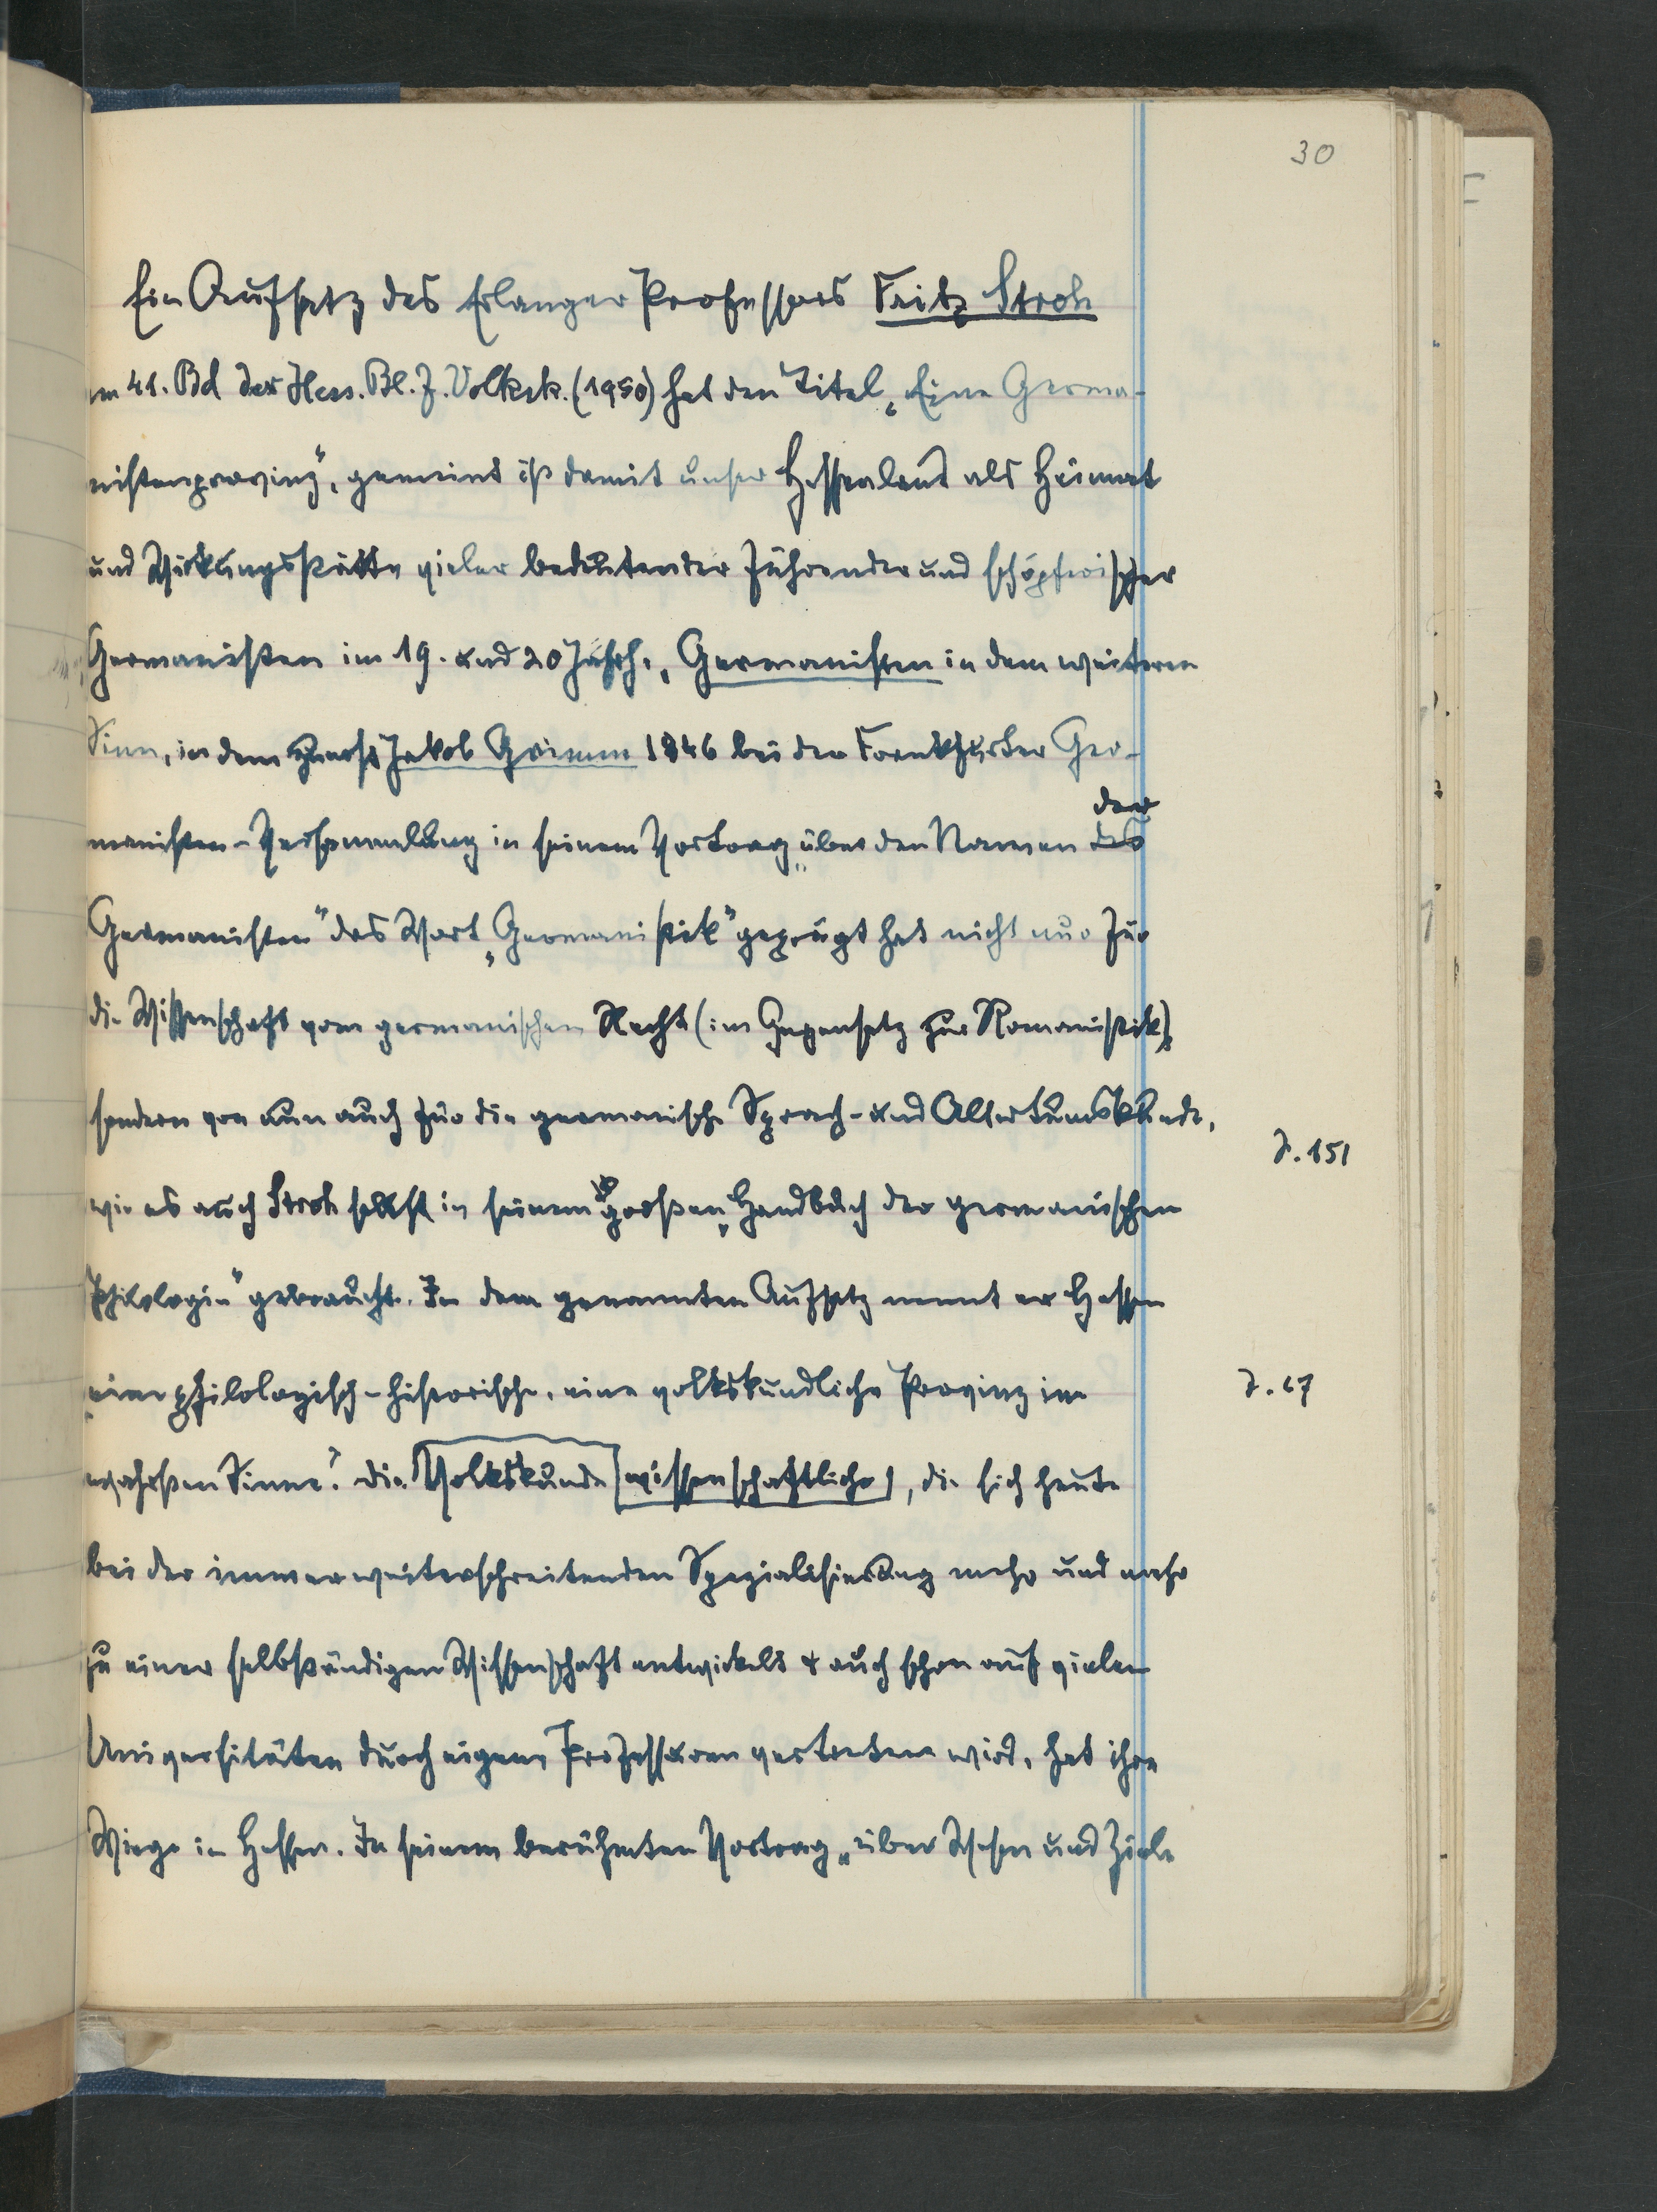 30
Ein Aufsatz des Erlanger Professors Fritz Stroh
im 41. Bd der Hess. Bl. f. Volksk. (1950) hat den Titel „Eine Germa-
nistenprovinz", gemeint ist damit unser Hessenland als Heimat
und Wirkungsstätte vieler bedeutender führender und schöpferischer
Germanisten im 19. und 20 Jahrh., Germanisten in dem weiteren
Sinn, in dem zuerst Jakob Grimm 1846 bei der Frankfurter Ger-
der
manisten-Versammlung in seinem Vortrag „über den Namen des
Germanisten" das Wort „Germanistik" geprägt hat nicht nur für
die Wissenschaft vom germanischen Recht (im Gegensatz zur Romanistik),
sondern von nun auch für die germanische Sprach- und Altertumskunde,
S. 151
wie es auch Stroh selbst in seinem großen „Handbuch der germanischen
Philologie" gebraucht. In dem genannten Aufsatz nennt er Hessen
„eine philologisch-historische, eine volkskundliche Provinz im
S. 67
wahrsten Sinne". Die Volkskunde wissenschaftliche, die sich heute
bei der immer weiterschreitenden Spezialisierung mehr und mehr
zu einer selbständigen Wissenschaft entwickelt + auch schon auf vielen
Universitäten durch eigene Professuren vertreten wird, hat ihre
Wiege in Hessen. In seinem berühmten Vortrag „über Wesen und Ziele